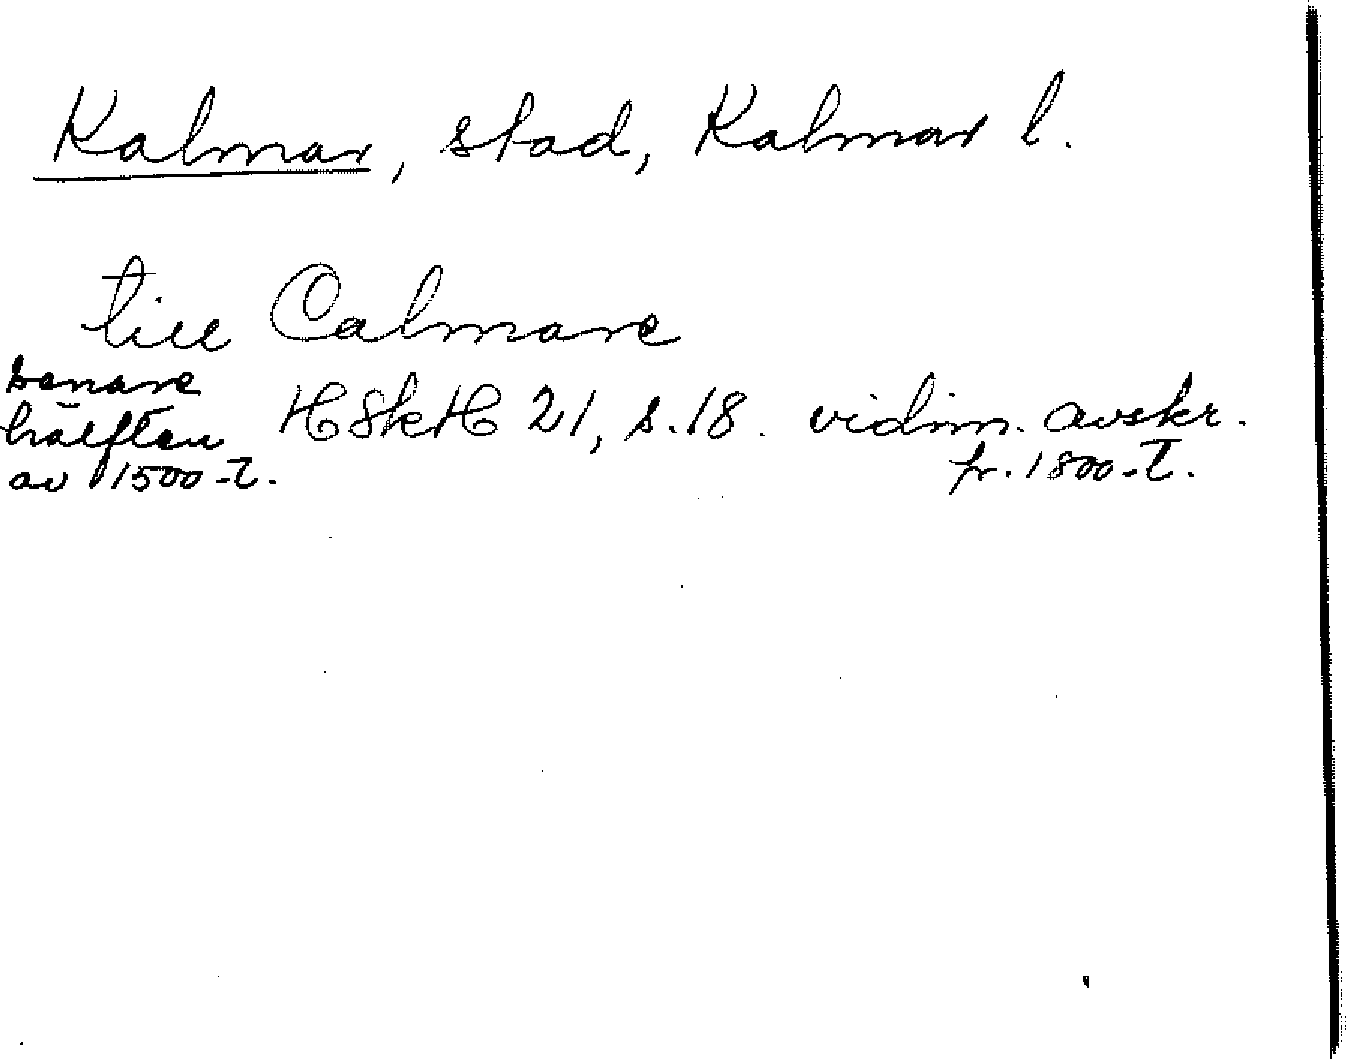 Kalmar, stad, Kalmar l.
till Calmare
senare
hälften
av 1500-t.
HSkH 21, s. 18. vidim. avskr.
fr. 1800-t.